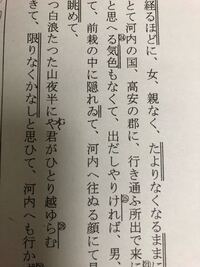 経るほどに、女、親なく、たよりなくなるままに
とて河内の国、高安の郡に、行き通ふ所出で来に
と思へる気色もなくて、出だしやりければ、男、
て、前栽の中に隠れゐて、河内へ往ぬる顔にて見
眺めて、
つ白浪たつた山夜半にや君がひとり越ゆらむ
きて、限りなくかなしと思ひて、河内へも行かず